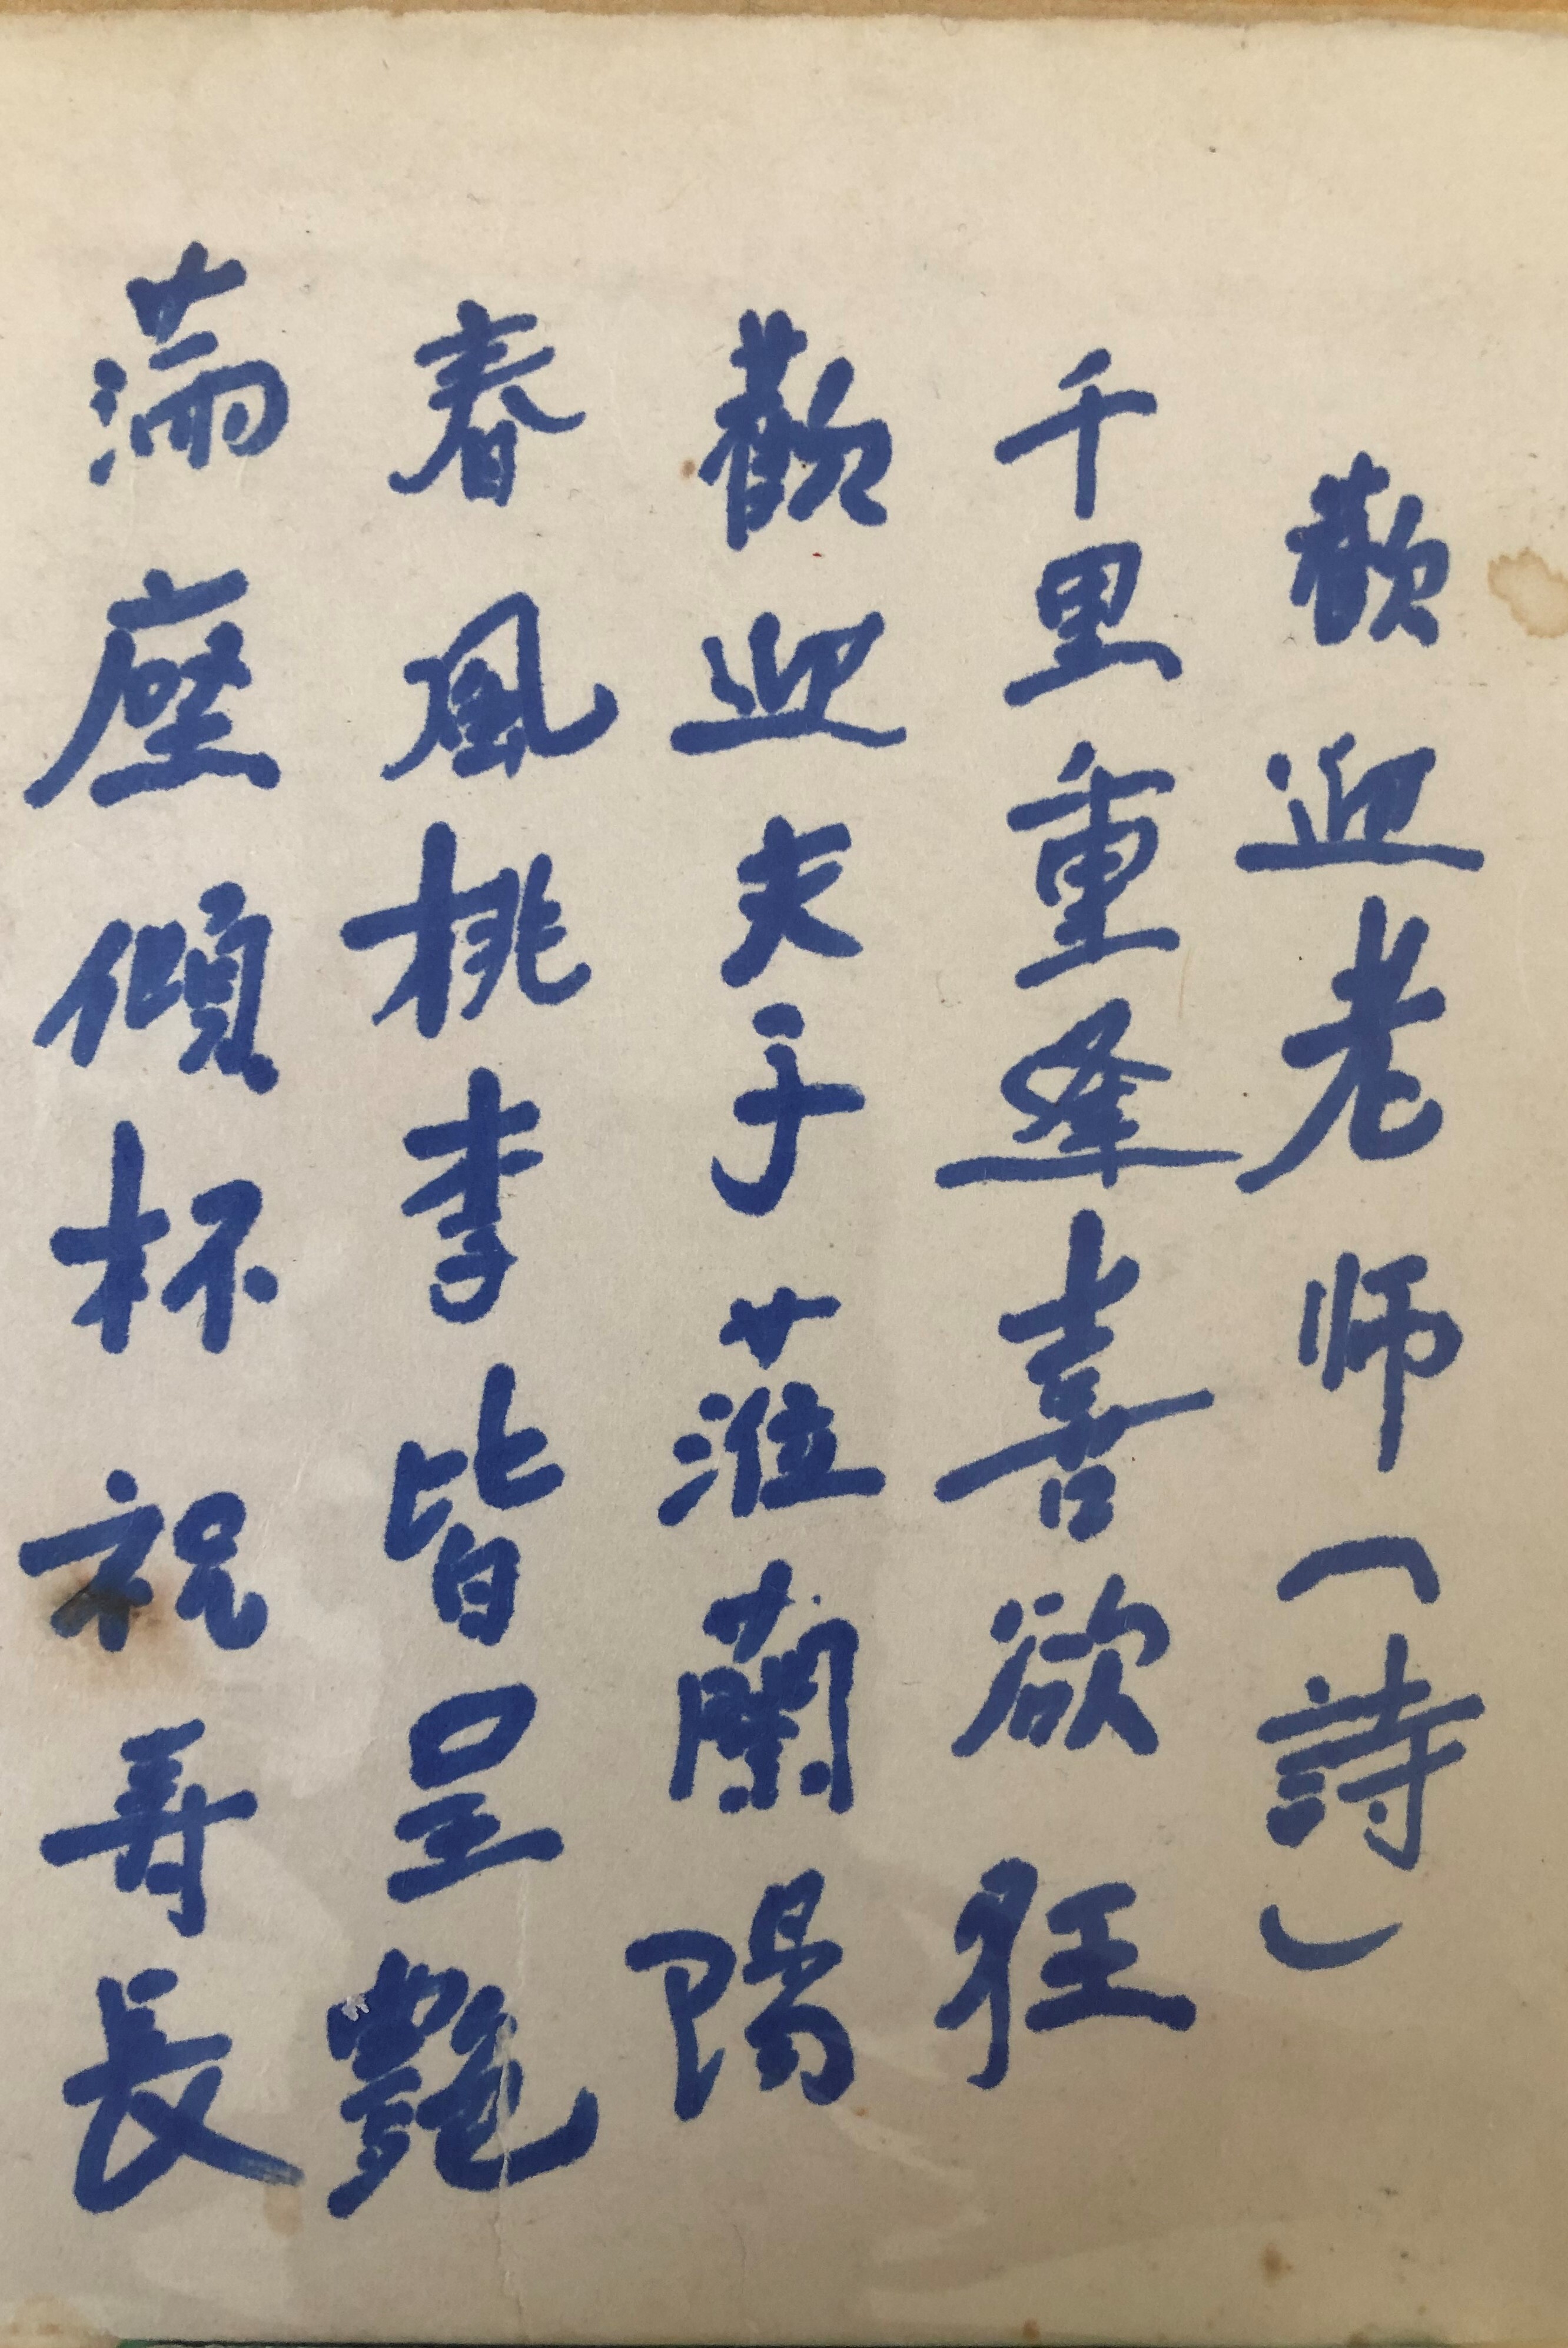 歡迎老师(詩)
千里重逢喜欲狂
歡迎夫子蒞蘭陽
春風桃李皆呈艷
滿座傾杯祝壽長